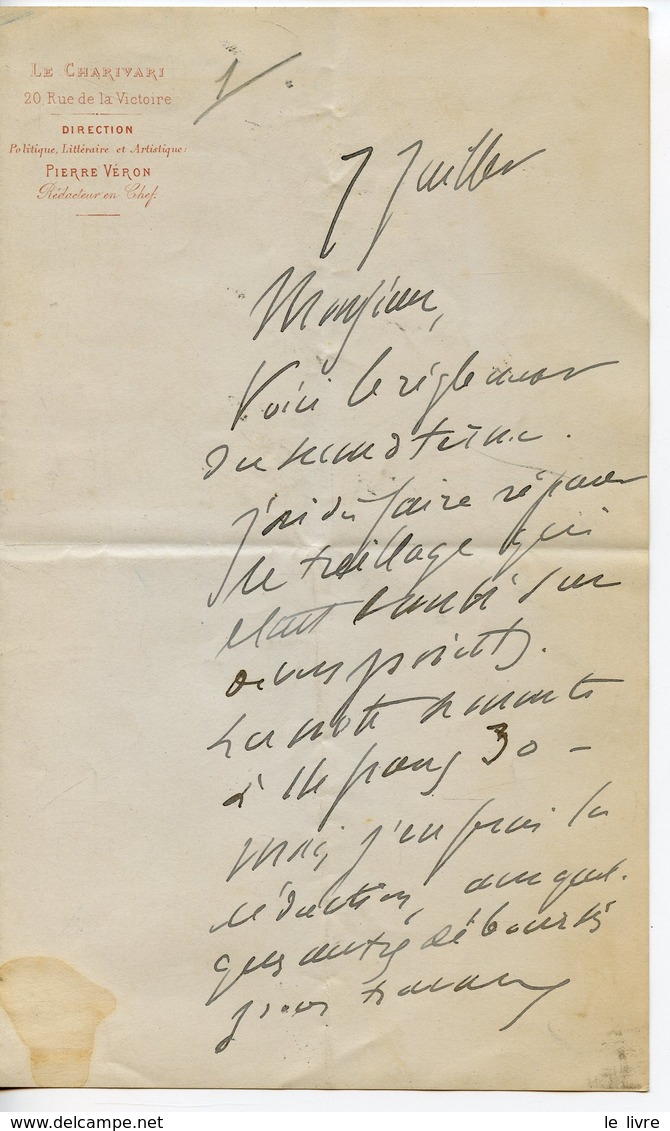 LE CHARIVARI
20, Rue de la Victoire
DIRECTION
Politique, Littéraire et Artistique:
PIERRE VÉRON
Rédacteur en Chef.
1/.
7 Juillet
Monsieur,
Voici le règlement
du second terme.
J'ai dû faire réparer
le treillage qui
était tombé sur
deux points.
La note se monte
à 11 francs 30 –
mais j'en ferai la
réduction, avec quel-
ques autres débours
pour travaux
le livre